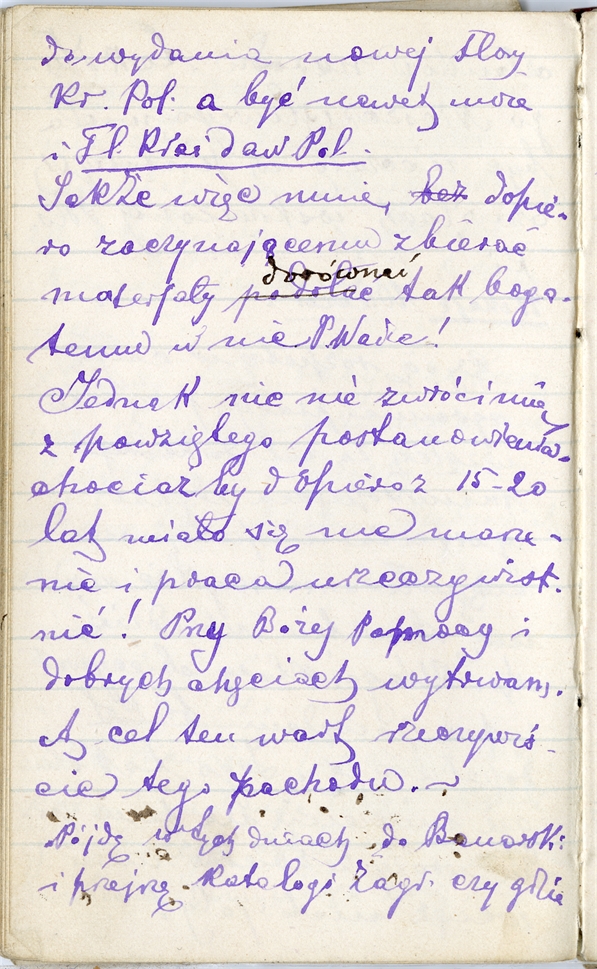 do wydania nowej Flory
Kr. Pol. a być nawet może
i Fl. Krai daw Pol.
Jakże więc mnie, bez dopie-
ro zaczynającemu zbierać
dorównać
materjały podołać tak boga-
temu w nie P.
Jednak nic nie zwróci mię
z powziętego postanowienia
chociażby dopiero z 15-20
lat miało się me marze-
nie i praca urzeczywist-
nić! Przy Bożej Pomocy i
dobrych chęciach wytrwam.
A cel ten wart rzeczywiś-
cie tego zachodu. ~
Pójdę w tych dniach do
i przejrzę Katalogi Zagr. czy gdzie